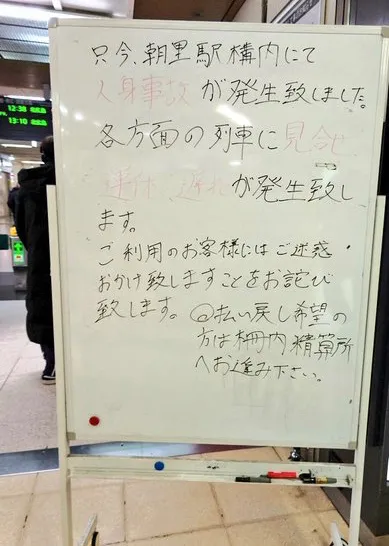 12:38
13:10
只今、朝里駅構内にて
人身事故が発生致しました。
各方面の列車に見合せ
運休、遅れが発生致し
ます。
ご利用のお客様にはご迷惑・
おかけ致しますことをお詫び
致します。@払い戻し希望の
方は柵内精算所
へお進み下さい。